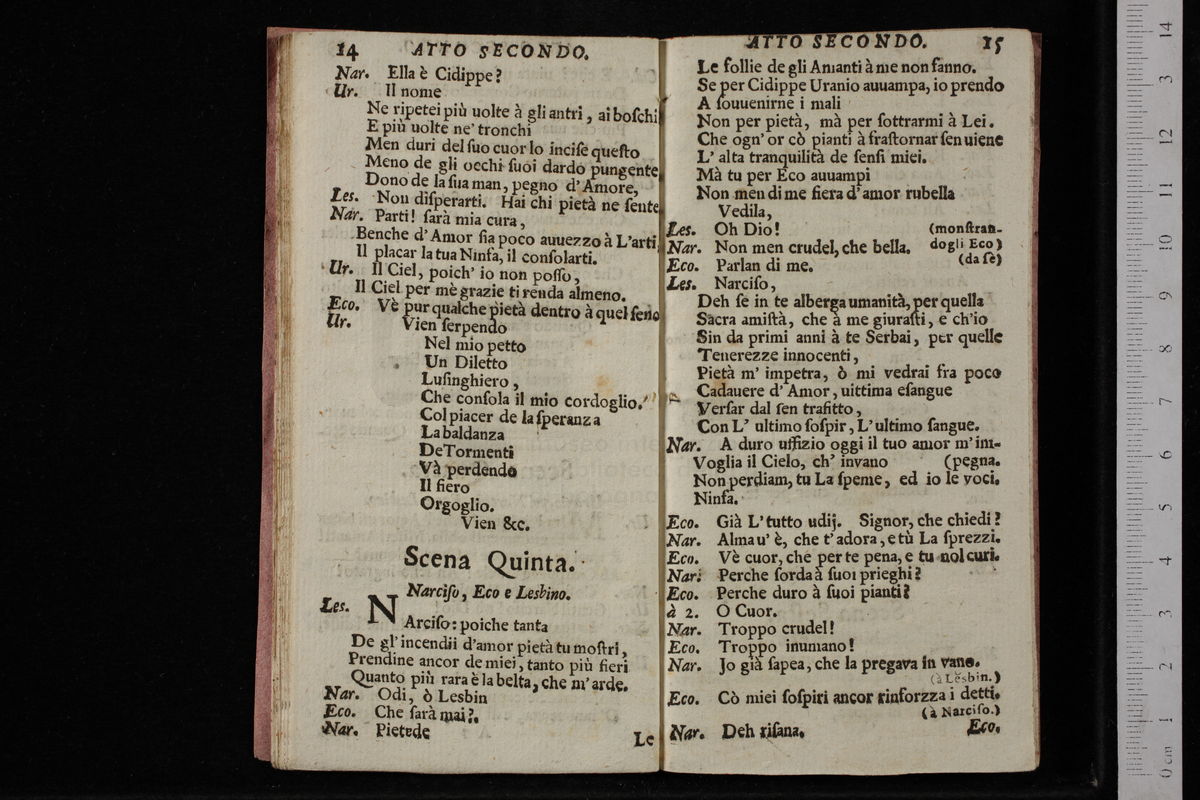 14 ATTO SECONDO.
Nar. Ella è Cidippe?
Ur. Il nome
Ne ripetei più uolte à gli antri, ai boſchi
E più uolte ne' tronchi
Men duri del ſuo cuor lo inciſe queſto
Meno de gli occhi ſuoi dardo pungente
Dono de la ſua man, pegno d'Amore,
Les. Non diſperarti. Hai chi pietà ne ſente
Nar. Parti! ſarà mia cura,
Benche d'Amor ſia poco auuezzo à L'arti
Il placar la tua Ninfa, il conſolarti.
Ur. Il Ciel, poich' io non poſſo,
Il Ciel per mè grazie ti renda almeno.
Eco. Vè pur qualche pietà dentro à quel ſeno
Ur. Vien ſerpendo
Nel mio petto
Un Diletto
Luſinghiero,
Che conſola il mio cordoglio.
Col piacer de la ſperanza
La baldanza
De Tormenti
Và perdendo
Il fiero
Orgoglio.
Vien &c.
Scena Quinta.
Narciſo, Eco e Lesbino.
Les. NArciſo: poiche tanta
De gl'incendii d'amor pietà tu moſtri,
Prendine ancor de miei, tanto più fieri
Quanto più rara è la belta, che m'arde.
Nar. Odi, ò Lesbin
Eco. Che ſarà mai?.
Nar. Pietede
Le
ATTO SECONDO. 15
Le follie de gli Amanti à me non fanno.
Se per Cidippe Uranio auuampa, io prendo
A ſouuenirne i mali
Non per pietà, mà per ſottrarmi à Lei.
Che ogn' or cò pianti à fraſtornar ſen uiene
L' alta tranquilità de ſenſi miei.
Mà tu per Eco auuampi
Non men di me fiera d'amor rubella
Vedila,
Les. Oh Dio! (monſtran-
Nar. Non men crudel, che bella. dogli Eco)
Eco. Parlan di me. (da ſè)
Les. Narciſo,
Deh ſe in te alberga umanità, per quella
Sacra amiſtà, che à me giuraſti, e ch'io
Sin da primi anni à te Serbai, per quelle
Tenerezze innocenti,
Pietà m' impetra, ò mi vedrai fra poco
Cadauere d' Amor, uittima eſangue
Verſar dal ſen trafitto,
Con L' ultimo ſoſpir, L'ultimo ſangue.
Nar. A duro uffizio oggi il tuo amor m'im-
Voglia il Cielo, ch' invano (pegna.
Non perdiam, tu La ſpeme, ed io le voci.
Ninfa.
Eco. Già L'tutto udij. Signor, che chiedi?
Nar. Alma u' è, che t'adora, e tù La ſprezzi.
Eco. Vè cuor, che per te pena, e tu nol curi.
Nar: Perche ſorda à ſuoi prieghi?
Eco. Perche duro à ſuoi pianti?
à 2. O Cuor.
Nar. Troppo crudel!
Eco. Troppo inumano!
Nar. Jo già ſapea, che la pregava in vano.
(à Lesbin.)
Eco. Cò miei ſoſpiri ancor rinforzza i detti.
(à Narciſo.)
Nar. Deh riſana.
Eco.